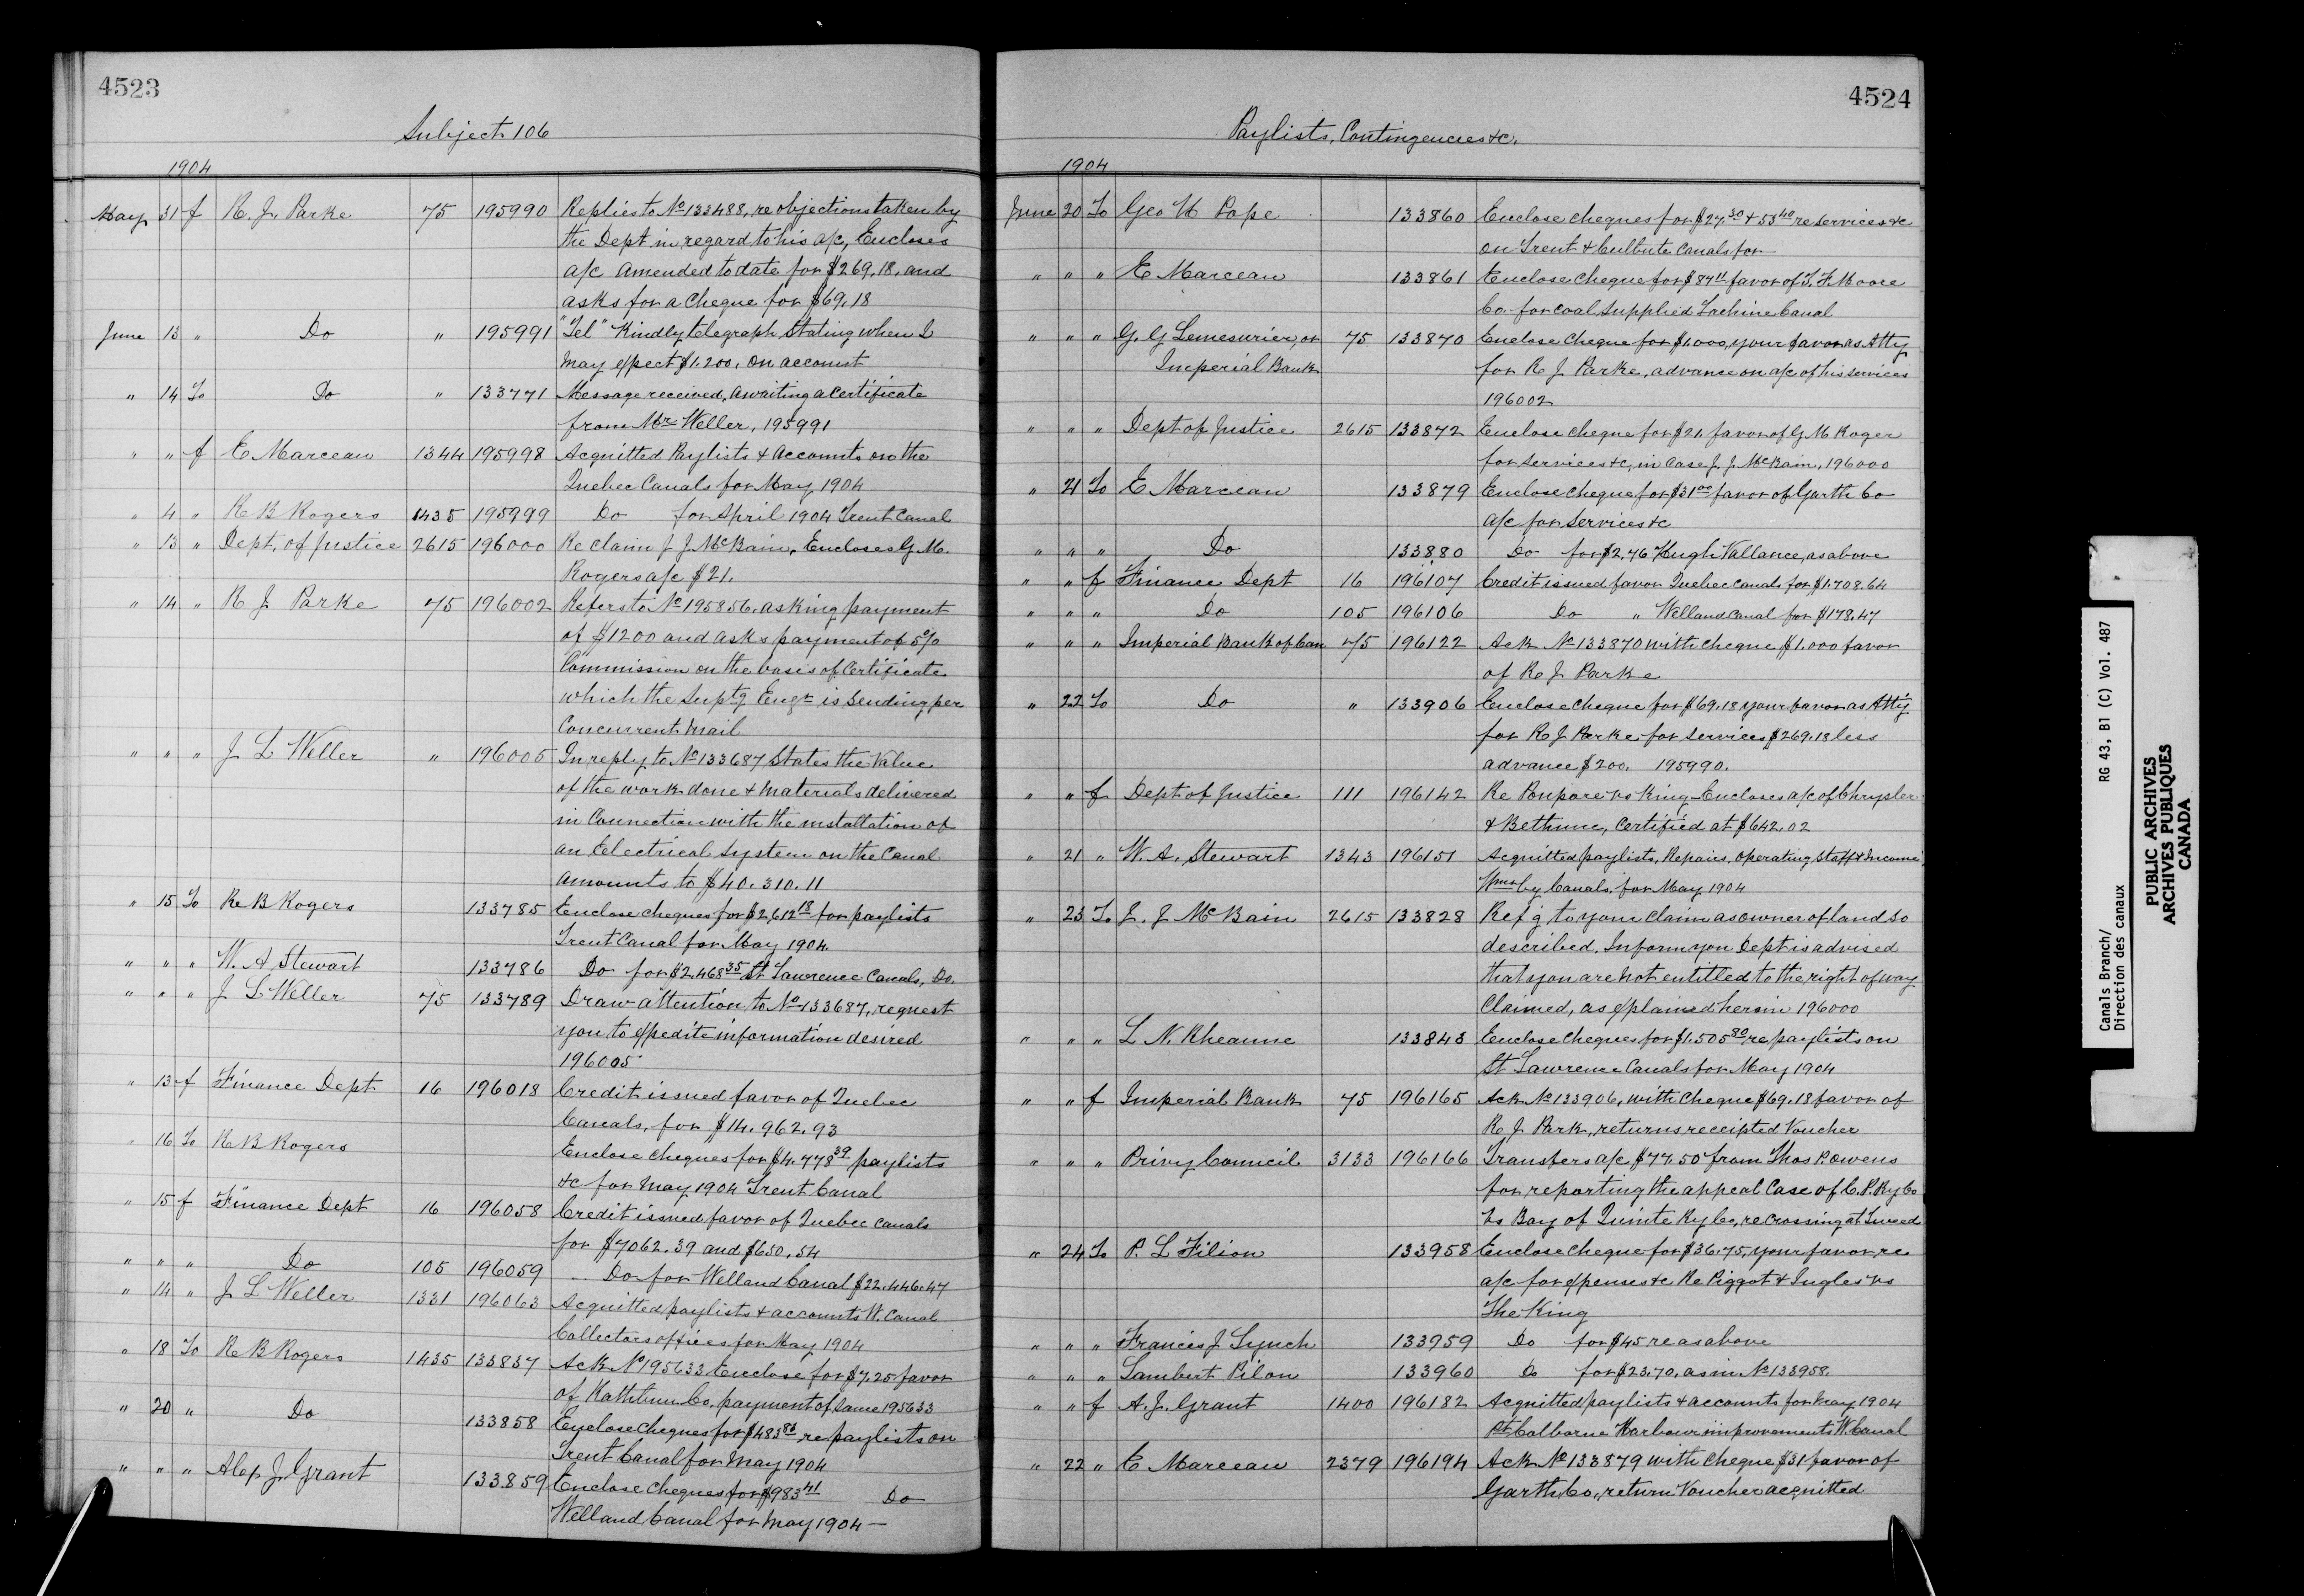 4523
Subject 106
1904
May 31 f R. J. Parke 75 195990 Replies to No 133488, re objections taken by
the Dept in regard to his a/c, Encloses
a/c amended to date for $269.18, and
asks for a cheque for $69.18
June 13 " Do " 195991 "Tel" Kindly telegraph stating when I
may expect $1.200. on account
" 14 To Do " 133771 Message received, awaiting a certificate
from Mr Weller, 195991
" " f E Marceau 1344 195998 Acquitted Paylists & Accounts on the
Quebec Canals for May 1904
" 4 " R B Rogers 1435 195999 Do for April 1904 Trent Canal
" 13 " Dept. of Justice 2615 196000 Re claim J J McBain, Encloses G. M.
Rogers a/c $21.
" 14 " R J Parke 75 196002 Refers to No 195856, asking payment
of $1200 and asks payment of 5%
Commission on the basis of Certificate
which the Suptg Engr is sending per
Concurrent mail
" " " J L Weller " 196005 In reply to No 133687, states the value
of the work done & materials delivered
in connection with the installation of
an Electrical System on the Canal
amounts to $40.310.11
" 15 To R B Rogers 133785 Enclose cheques for $2,612 18 for paylists
Trent Canal for May 1904.
" " " W. A Stewart 133786 Do for $2.468 35 St Lawrence Canals, Do.
" " " J L Weller 75 133789 Draw attention to No 133687, request
you to expedite information desired
196005
" 13 f Finance Dept 16 196018 Credit issued favor of Quebec
Canals, for $14.962.93
" 16 To R B Rogers Enclose cheques for $4.778 39 paylists
&c for May 1904 Trent Canal
" 15 f Finance Dept 16 196058 Credit issued favor of Quebec Canals
for $7062.39 and $650.54
" " " Do 105 196059 Do for Welland Canal $22.446.47
" 14 " J L Weller 1331 196063 Acquitted paylists & accounts W. Canal
Collectors offices for May 1904
" 18 To R B Rogers 1435 133837 Ack No 195633 Enclose for $7.25 favor
of Co. payment of same 195633
" 20 " Do 133858 Enclose cheques for $483 re paylists on
Trent Canal for May 1904
" " " Alex J. Grant 133859 Enclose cheques for $983 41 Do
Welland Canal for May 1904 —
4524
Paylists, Contingencies &c.
1904
June 20 To Geo H Pope 133860 Enclose cheques for $27.30 & 53 40 re services &c
on Trent & Culbute Canals for
" " " E Marceau 133861 Enclose cheque for $87 11 favor of T. F. Moore
Co. for coal supplied Lachine Canal
" " " G. G Lemesurier, or 75 133870 Enclose cheque for $1,000, your favor as Atty
Imperial Bank for R J Parke, advance on a/c of his services
196002
" " " Dept of Justice 2615 133872 Enclose cheque for $21. favor of G M Roger
for services &c, in case J. J. McBain, 196000
" 21 To E Marceau 133879 Enclose cheque for $31 00 favor of Garth Co
a/c for services &c
" " " Do 133880 Do for $2,76 Hugh Vallance, as above
" " f Finance Dept 16 196107 Credit issued favor Quebec Canals for $1.708.64
" " " Do 105 196106 Do " Welland Canal for $178.47
" " " Imperial Bank of Can 75 196122 Ack No 133870 with cheque $1.000 favor
of R J Parke
" 22 To Do " 133906 Enclose cheque for $69.18 your favor as Atty
for R J Parke for services $269.18 less
advance $200. 195990.
" " f Dept of Justice 111 196142 Re Pompore vs King - Encloses a/c of Chrysler
& Bethune, certified at $642.02
" 21 " W. A. Stewart 1343 196151 Acquitted paylists, Repairs, operating Staff & Income
Wmsbg Canals, for May 1904
" 23 To J. J McBain 2615 133828 Refg to your claim as owner of land so
described. Inform you Dept is advised
that you are not entitled to the right of way
Claimed, as explained herein 196000
" " " L N. Rheaume 133843 Enclose cheques for $1.505 80 re paylists on
St Lawrence Canals for May 1904
" " f Imperial Bank 75 196165 Ack No 133906, with cheque $69.18 favor of
R J Park, returns receipted Voucher
" " " Privy Council 3133 196166 Transfers a/c $77.50 from Thos P. Owens
for reporting the appeal Case of C. P. Ry Co
vs Bay of Quinte Ry Co, re Crossing at Tweed
" 24 To P. L Filion 133958 Enclose cheque for $36.75, your favor, re
a/c for expenses &c Re Piggot & Ingles vs
The King
" " " Francis J Lynch 133959 Do for $45 re as above
" " " Lambert Pilon 133960 Do for $23.70, as in No 133958.
" " f A. J. Grant 1400 196182 Acquitted paylists & accounts for May 1904
Pt Colborne Harbour improvements W. Canal
" 22 " E Marceau 2379 196194 Ack No 133879 with cheque $31 favor of
Garth Co., return Voucher acquitted
Canals Branch/
Direction des canaux
RG 43, B1 (C) Vol. 487
PUBLIC ARCHIVES
ARCHIVES PUBLIQUES
CANADA